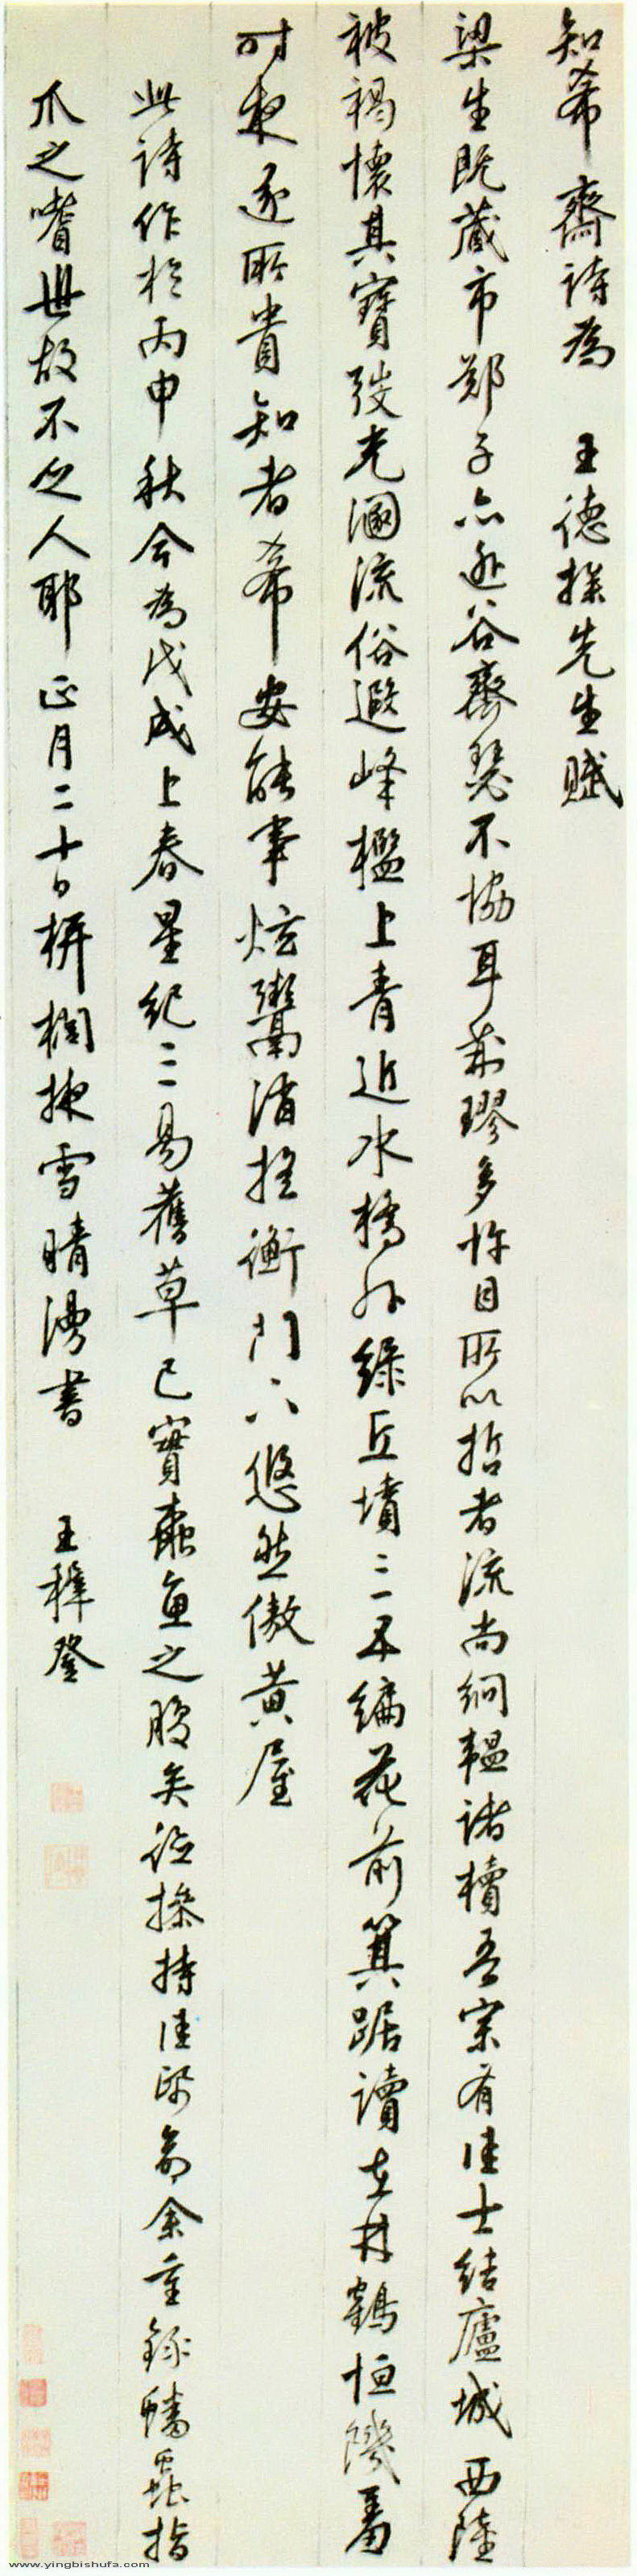 知希齋詩為 王德操先生賦
梁生既藏市鄭子亦逃谷齊瑟不協耳荊璆多忤目所以哲者流尚絅韞諸櫝吾宗有佳士結廬城西陸
被褐懷其寶韜光溷流俗遐峰檻上青近水橋外綠丘墳三五編花前箕踞讀在林鶴恒饑番
時夜逐所貴知者希安能事炫鬻滑揺衡門下悠然傲黃屋
此詩作於丙申秋今為戊戌上春星紀三易舊草已實蠹魚之腹矣德操持佳紙命余重錄蟠蟲指
爪之嗜世故不乏人耶 正月二十日栟櫚掖雪晴漫書 王穉登
www.yingbishufa.com